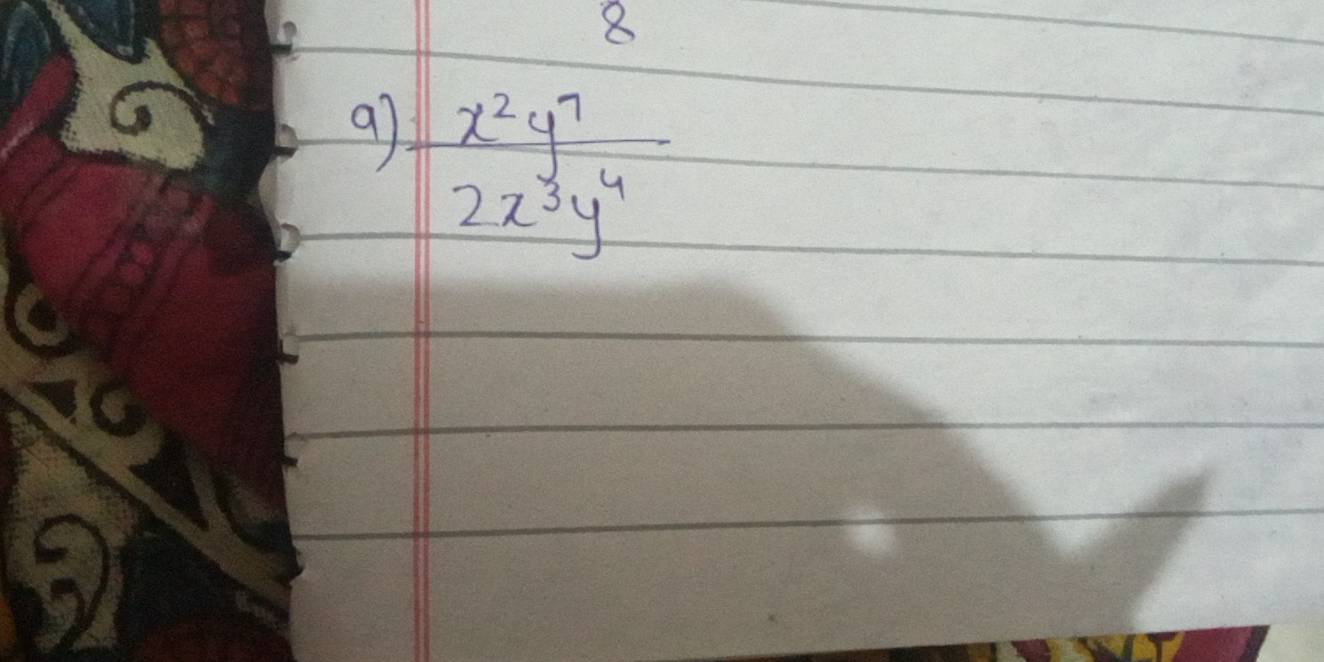 8
9) x²y⁷
2x³y⁴